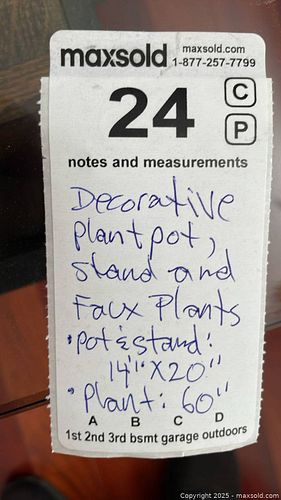 maxsold maxsold.com
1-877-257-7799
24 C
P
notes and measurements
Decorative
plant pot,
stand and
Faux Plants
• pot & stand:
14" x 20"
• Plant: 60"
A B C D
1st 2nd 3rd bsmt garage outdoors
Copyright 2025 - maxsold.com